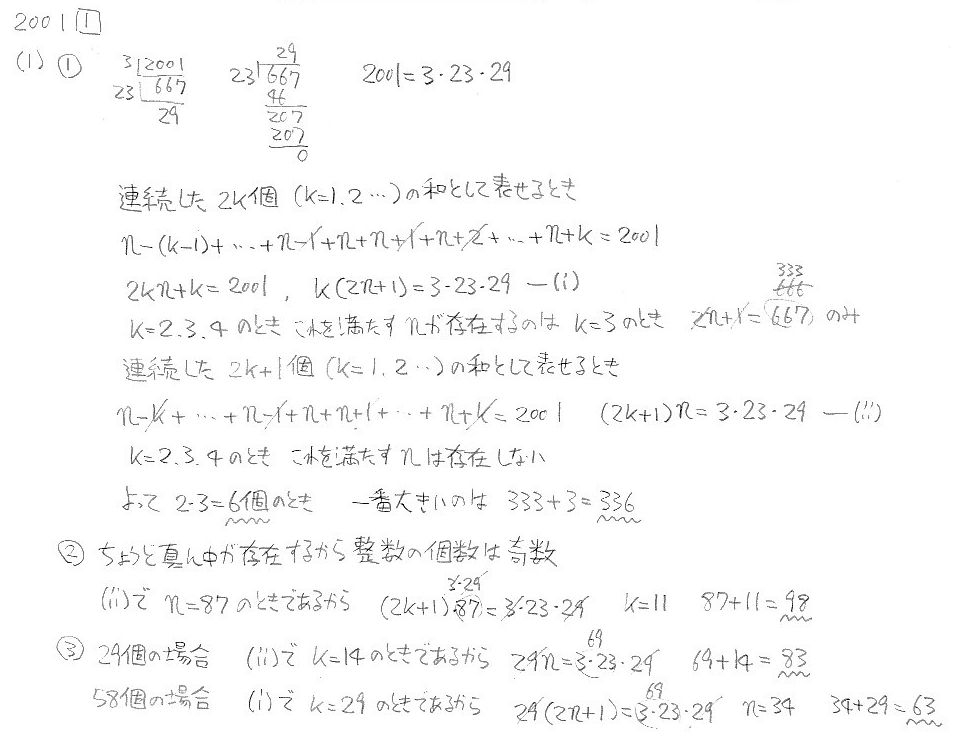 2001 1
(1) ① 3 2001 29 2001=3・23・29
23 667 23 667
29 46
207
207
0
連続した 2k個 (k=1.2…)の和として表せるとき
n-(k-1)+…+n-1+n+n+1+n+2+…+n+k=2001
2kn+k=2001, k(2n+1)=3・23・29 —(i)
333
666
k=2.3.4のとき これを満たすnが存在するのは k=3のとき 2n+1=667 のみ
連続した 2k+1個 (k=1.2…)の和として表せるとき
n-k+…+n-1+n+n+1+…+n+k=2001 (2k+1)n=3・23・29 —(ii)
k=2.3.4のとき これを満たすnは存在しない
よって 2・3=6個のとき 一番大きいのは 333+3=336
② ちょうど真ん中が存在するから整数の個数は奇数
3・29
(ii)で n=87のときであるから (2k+1)・87=3・23・29 k=11 87+11=98
69
③ 29個の場合 (ii)で k=14のときであるから 29n=3・23・29 69+14=83
69
58個の場合 (i)で k=29のときであるから 29(2n+1)=3・23・29 n=34 34+29=63